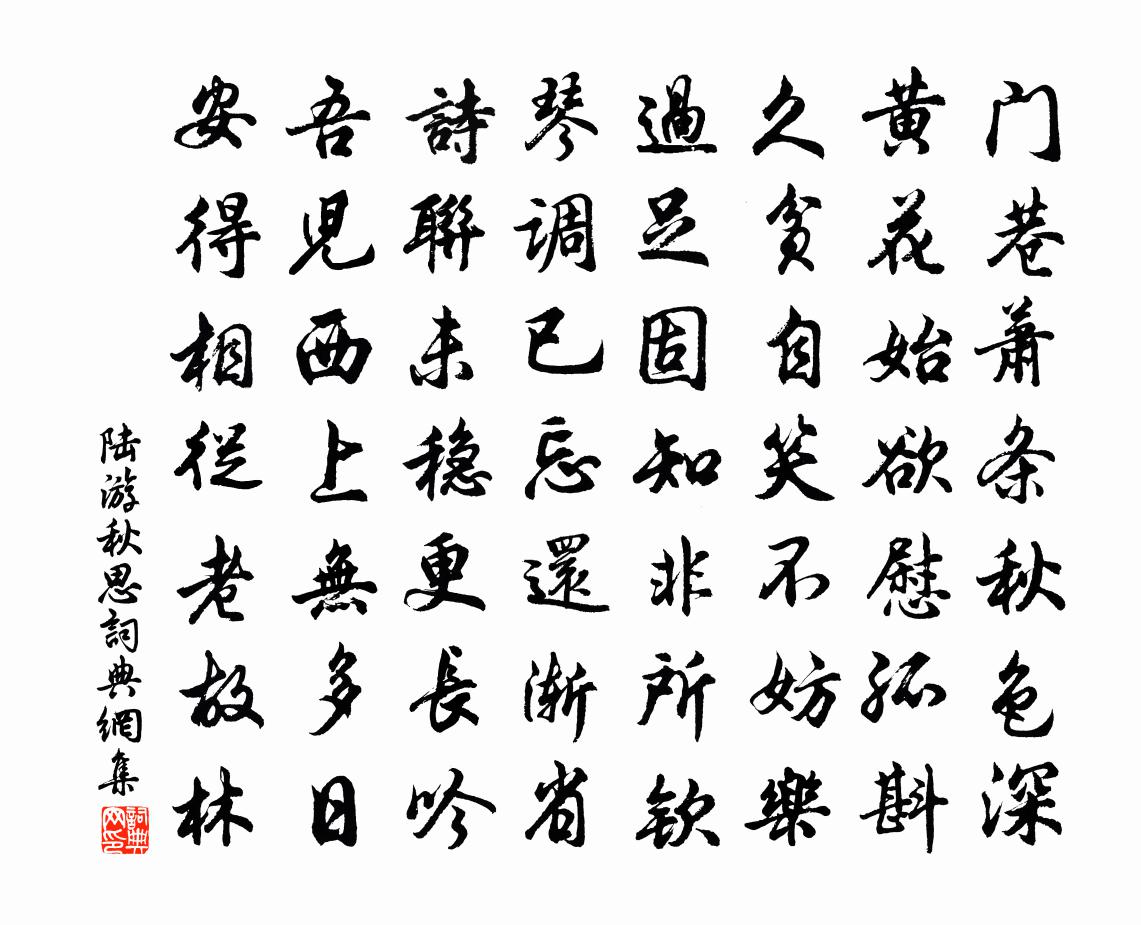 门巷萧条秋色深
黄花始欲慰孤斟
久贫自笑不妨樂
過足固知非所钦
琴调已忘還渐省
詩聯未稳更長吟
吾児西上無多日
安得相從老故林
陆游秋思詞典網集
詞典网印